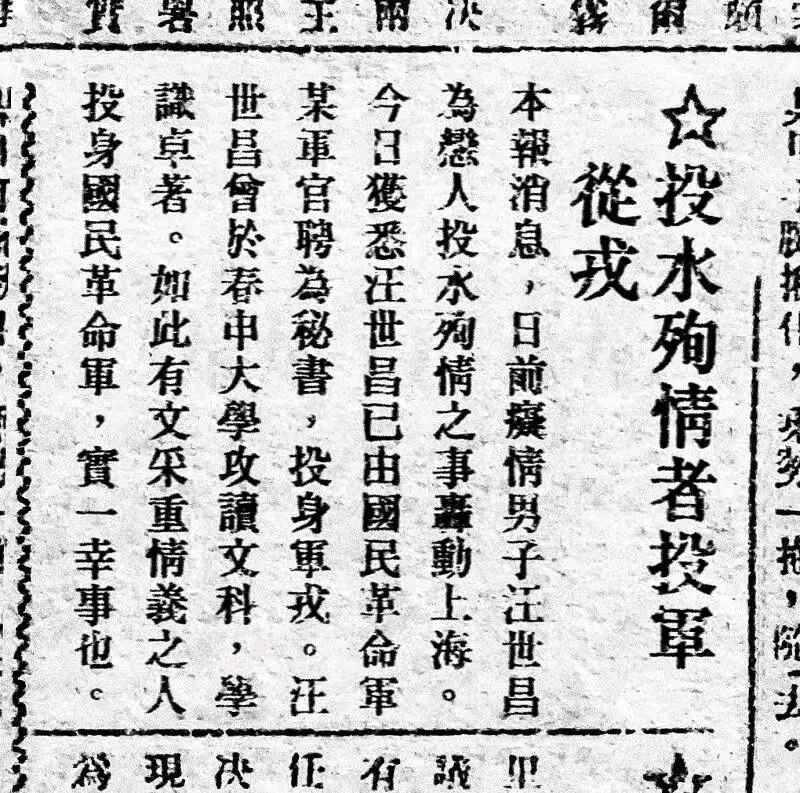 ☆投水殉情者投軍
從戎
本報消息，日前癡情男子汪世昌
為戀人投水殉情之事轟動上海。
今日獲悉汪世昌已由國民革命軍
某軍官聘為秘書，投身軍戎。汪
世昌曾於春申大學攻讀文科，學
識卓著。如此有文采重情義之人
投身國民革命軍，實一幸事也。